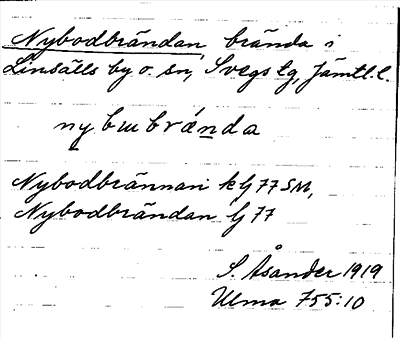 Nybodbrändan, brända i
Linsälls by o. sn, Svegs tg, Jämtl. l.
nybɯbrända
Nybodbrännan k G 77 SM,
Nybodbrändan G 77
S. Åsander 1919
Ulma 755:10